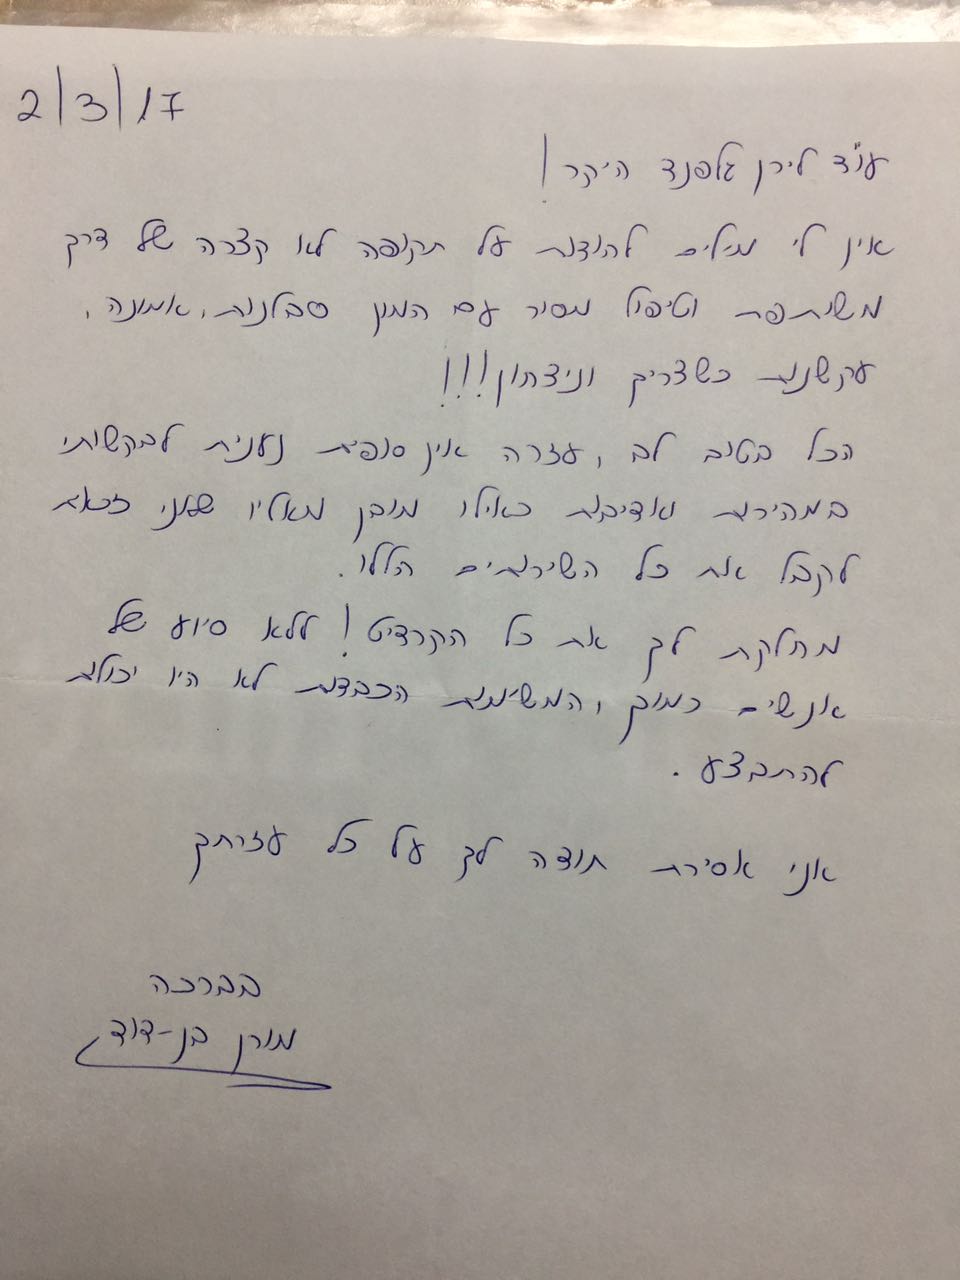 2/3/17
עו"ד לירן גלפנד היקר!
אין לי מילים להודות על תקופה לא קצרה של דרך
משותפת וטיפול מסור עם המון סבלנות, אמונה,
עקשנות כשצריך וניצחון!!!
הכל בטוב לב, עזרה אין סופית נענית לבקשותי
במהירות ואדיבות כאילו מובן מאליו שאני זכאית
לקבל את כל השירותים הללו.
מחלקת לך את כל הקרדיט! ללא סיוע של
אנשים כמוך, המשימות הכבדות לא היו יכולות
להתבצע.
אני אסירת תודה לך על כל עזרתך
בברכה
מורן בן-דוד